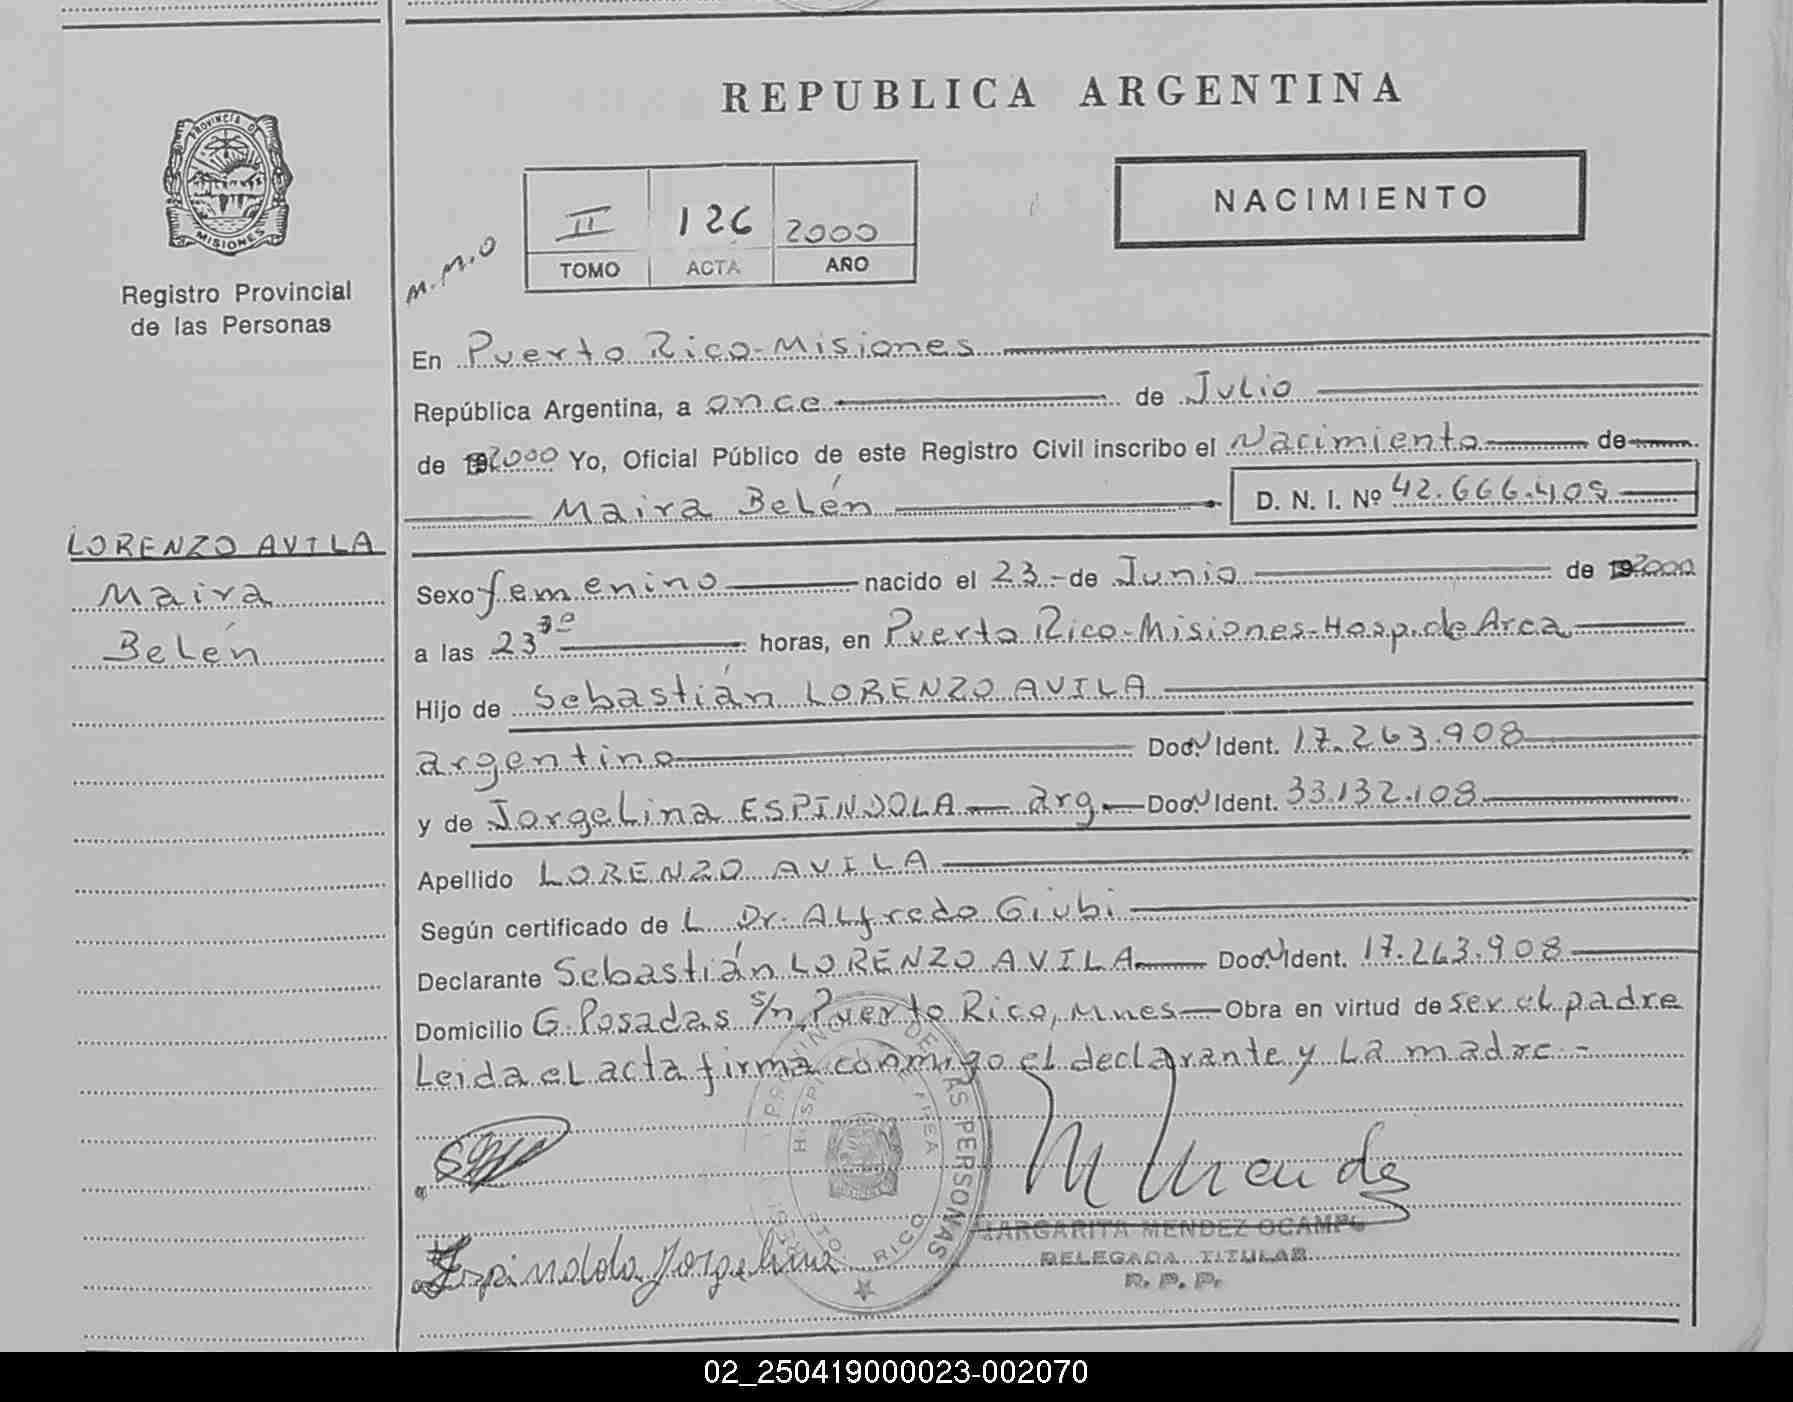 REPUBLICA ARGENTINA
PROVINCIA D
MISIONES
Registro Provincial
de las Personas
M.M.O
II 126 2000
TOMO ACTA AÑO
NACIMIENTO
En Puerto Rico-Misiones
República Argentina, a once de Julio
de 2000 Yo, Oficial Público de este Registro Civil inscribo el Nacimiento de
Maira Belén D. N. I. Nº 42.666.405
LORENZO AVILA
Maira
Belén
Sexo femenino nacido el 23 - de Junio de 2000
a las 23 30 horas, en Puerto Rico-Misiones-Hosp.de Area
Hijo de Sebastián LORENZO AVILA
argentino Doc. Ident. 17.263.908
y de Jorgelina ESPINDOLA - arg. Doc. Ident. 33.132.108
Apellido LORENZO AVILA
Según certificado de L Dr. Alfredo Giubi
Declarante Sebastián LORENZO AVILA Doc. Ident. 17.263.908
Domicilio G. Posadas s/n, Puerto Rico, Mnes - Obra en virtud de ser el padre
Leida el acta firma conmigo el declarante y La madre -
DE LAS PERSONAS
PTO. RICO
M Mende
MARGARITA MENDEZ OCAMPO
DELEGADA TITULAR
R. P. P.
Espindola Jorgelina
02_250419000023-002070